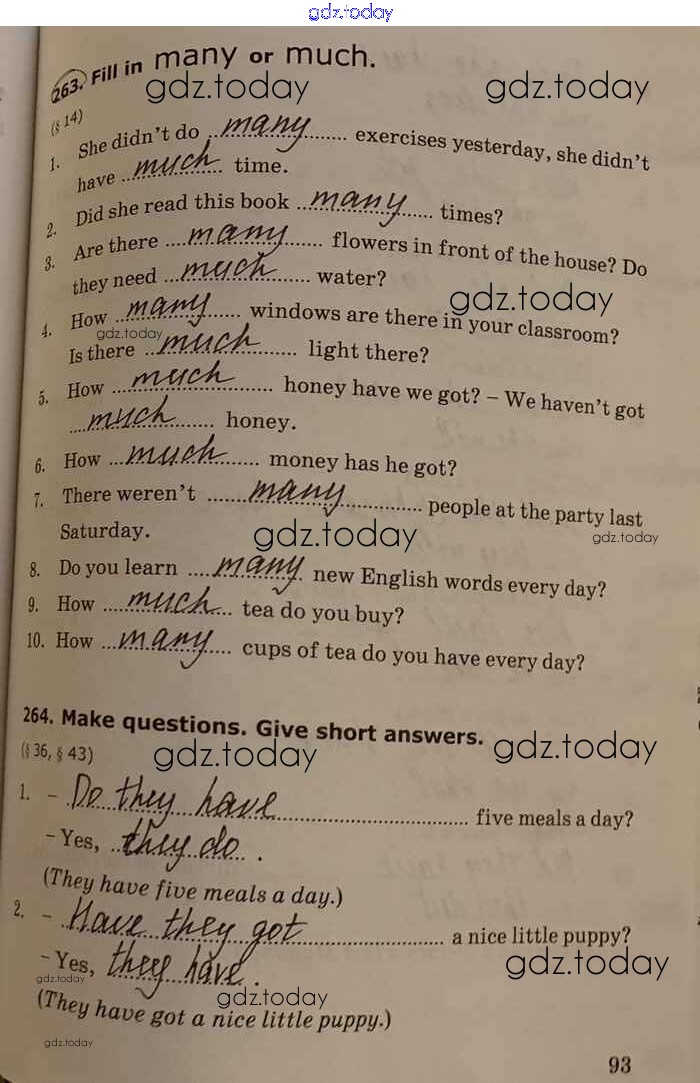 gdz.today
263. Fill in many or much.
gdz.today gdz.today
(§ 14)
1. She didn't do many exercises yesterday, she didn't
have much time.
2. Did she read this book many times?
3. Are there many flowers in front of the house? Do
they need much water?
gdz.today
4. How many windows are there in your classroom?
gdz.today
Is there much light there?
5. How much honey have we got? – We haven't got
much honey.
6. How much money has he got?
7. There weren't many people at the party last
Saturday.
gdz.today gdz.today
8. Do you learn many new English words every day?
9. How much tea do you buy?
10. How many cups of tea do you have every day?
264. Make questions. Give short answers.
(§ 36, § 43)
gdz.today gdz.today
1. – Do they have five meals a day?
– Yes, they do.
(They have five meals a day.)
2. – Have they got a nice little puppy?
– Yes, they have.
gdz.today gdz.today
gdz.today
(They have got a nice little puppy.)
gdz.today
93